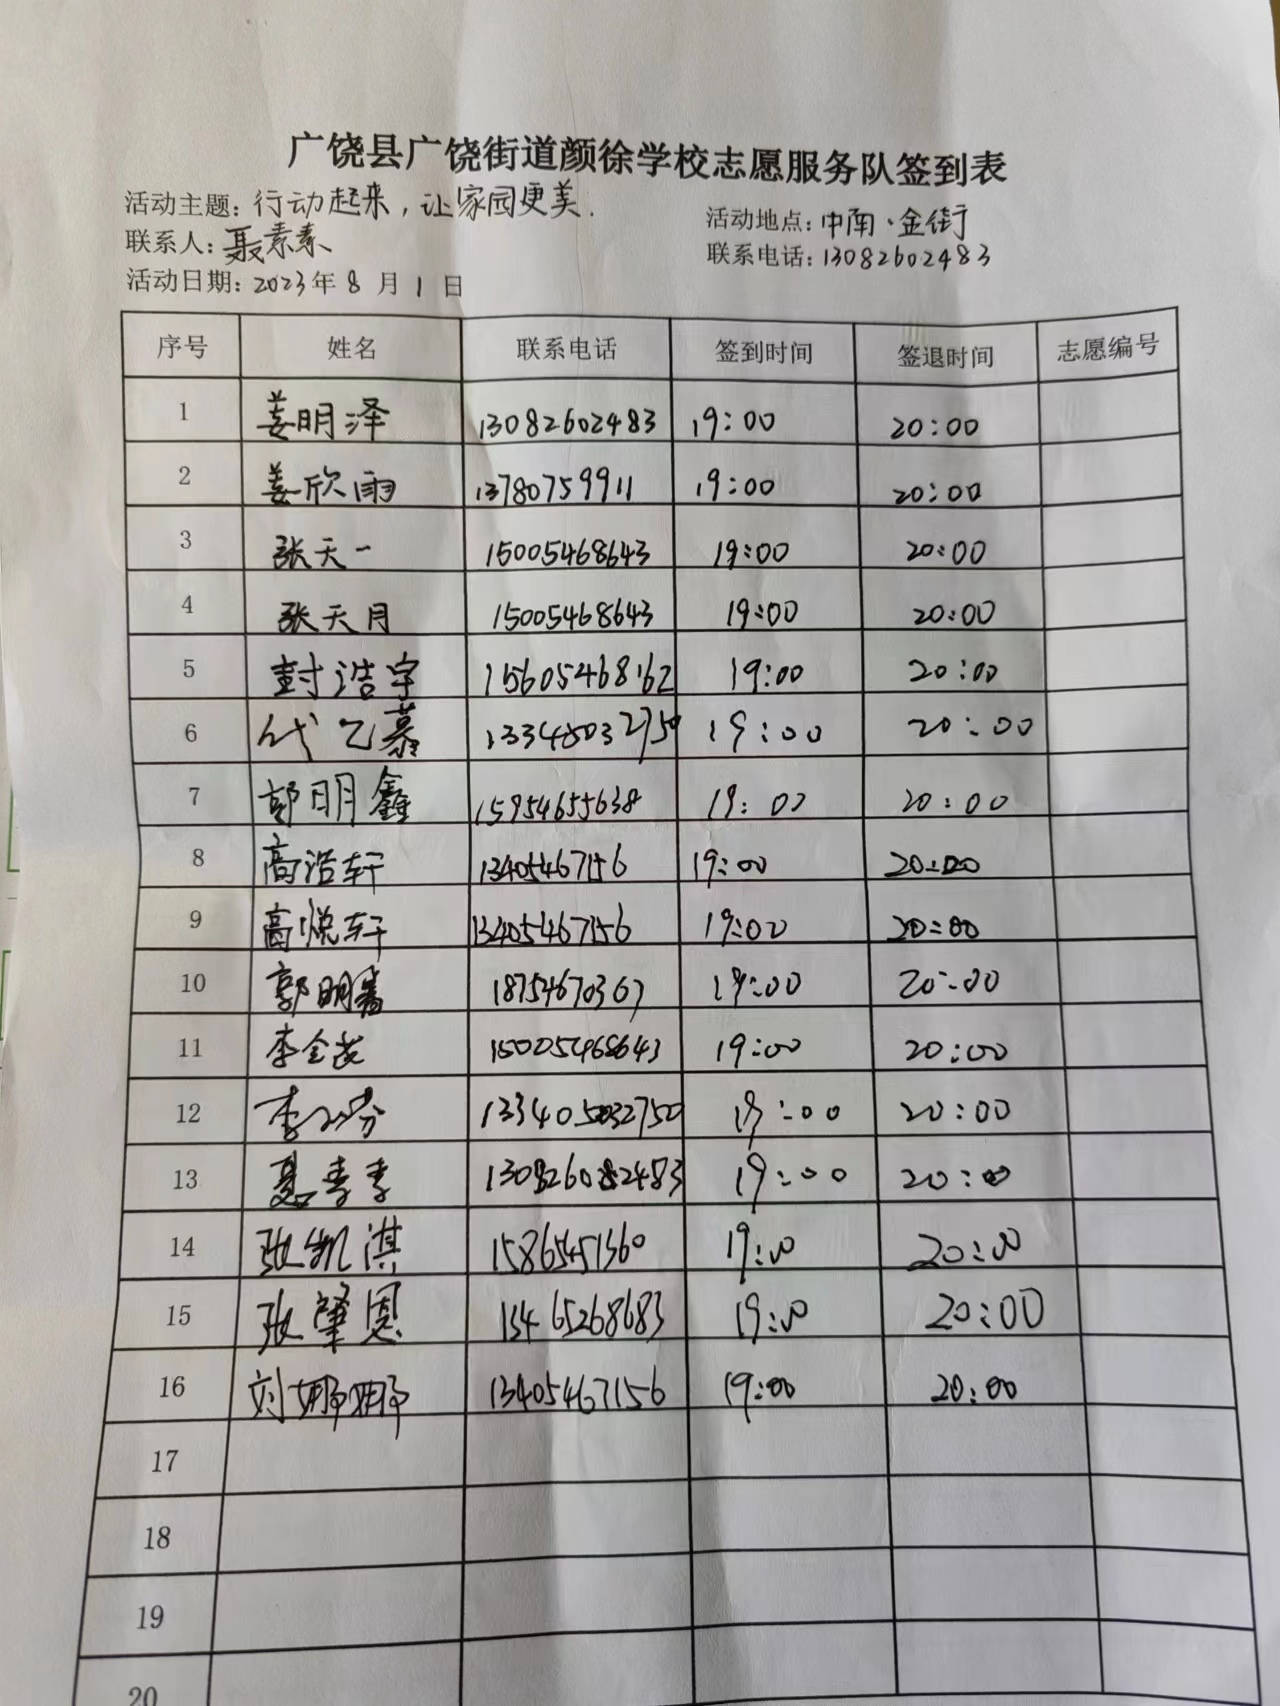 广饶县广饶街道颜徐学校志愿服务队签到表
活动主题：行动起来，让家园更美． 活动地点：中南·金街
联系人：聂素素 联系电话：13082602483
活动日期：2023年8月1日
序号 姓名 联系电话 签到时间 签退时间 志愿编号
1 姜明泽 13082602483 19:00 20:00
2 姜欣雨 13780759911 19:00 20:00
3 张天一 15005468643 19:00 20:00
4 张天月 15005468643 19:00 20:00
5 封浩宇 15605468162 19:00 20:00
6 代乙慕 19:00 20:00
7 郭明鑫 15954655638 19:00 20:00
8 高浩轩 13405467156 19:00 20:00
9 高悦轩 13405467156 19:00 20:00
10 郭明嘉 18754670367 19:00 20:00
11 19:00 20:00
12 19:00 20:00
13 19:00 20:00
14 张凯淇 15865451360 19:00 20:00
15 张肇恩 13465268683 19:00 20:00
16 刘娜娜 13405467156 19:00 20:00
17
18
19
20